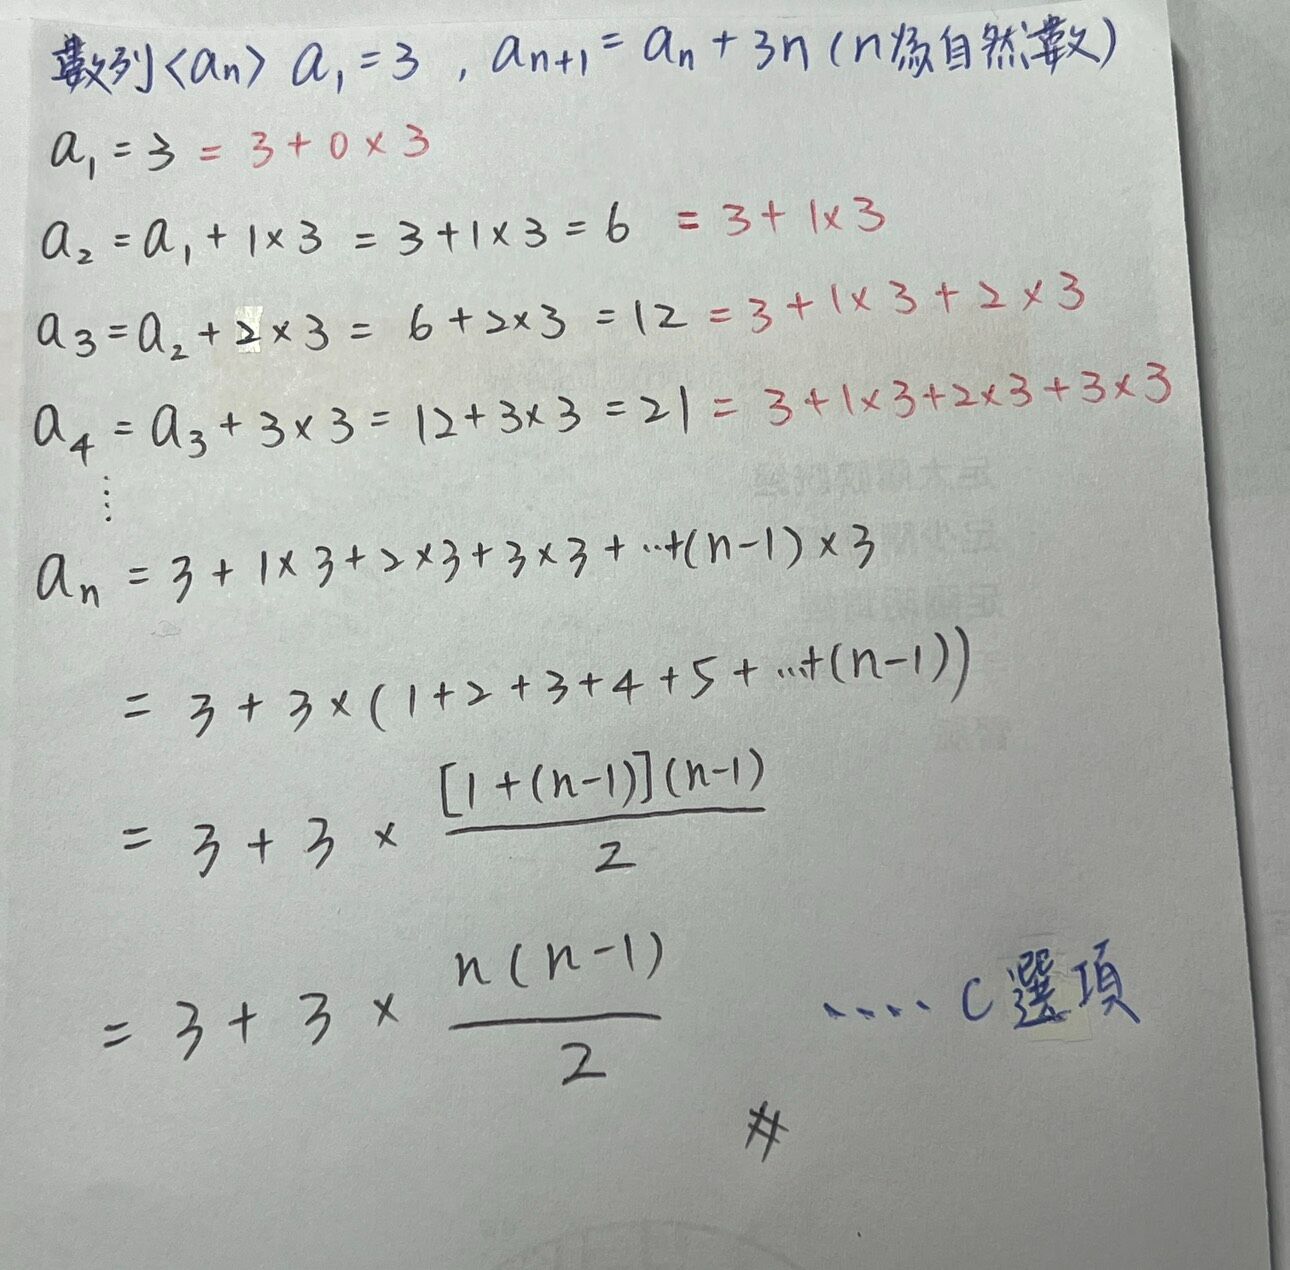 數列<an> a₁ = 3 , aₙ₊₁ = aₙ + 3n (n為自然數)
a₁ = 3 = 3 + 0 × 3
a₂ = a₁ + 1×3 = 3+1×3 = 6 = 3+1×3
a₃ = a₂ + 2×3 = 6+2×3 = 12 = 3+1×3+2×3
a₄ = a₃ + 3×3 = 12+3×3 = 21 = 3+1×3+2×3+3×3
⋮
aₙ = 3 + 1×3+2×3+3×3+…+(n-1)×3
= 3 + 3×(1+2+3+4+5+…+(n-1))
= 3 + 3 × [1+(n-1)](n-1)/2
= 3 + 3 × n(n-1)/2 .... C選項
#